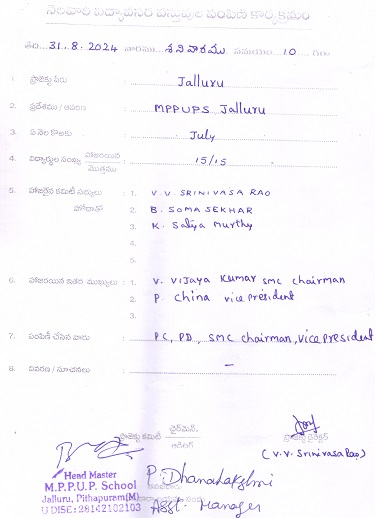 నెలవారి విద్యావసర వస్తువుల పంపిణీ కార్యక్రమం
తేది 31.8.2024 వారము శనివారము సమయం 10 గం
1. ప్రాజెక్టు పేరు : Jalluru
2. ప్రదేశము / ఆవరణ : MPPUPS Jalluru
3. ఏ నెల కొఱకు : July
4. విద్యార్థుల సంఖ్య హాజరయిన / మొత్తము : 15/15
5. హాజరైన కమిటీ సభ్యులు : 1. V. V. SRINIVASA RAO
హోదాతో 2. B. SOMA SEKHAR
3. K. Satya Murthy
4.
5.
6. హాజరయిన ఇతర ముఖ్యులు : 1. V. Vijaya Kumar SMC chairman
2. P. China vice president
3.
7. పంపిణీ చేసిన వారు : PC, PD, SMC chairman, vice president
8. వివరణ / సూచనలు : –
ప్రాజెక్టు కమిటీ చైర్‌మెన్.
ప్రాజెక్ట్ డైరెక్టర్
(V.V. Srinivasa Rao)
Head Master
M.P.P.U.P. School
Jalluru, Pithapuram(M)
U DISE: 28142102103
P. Dhanalakshmi
Asst. Manager